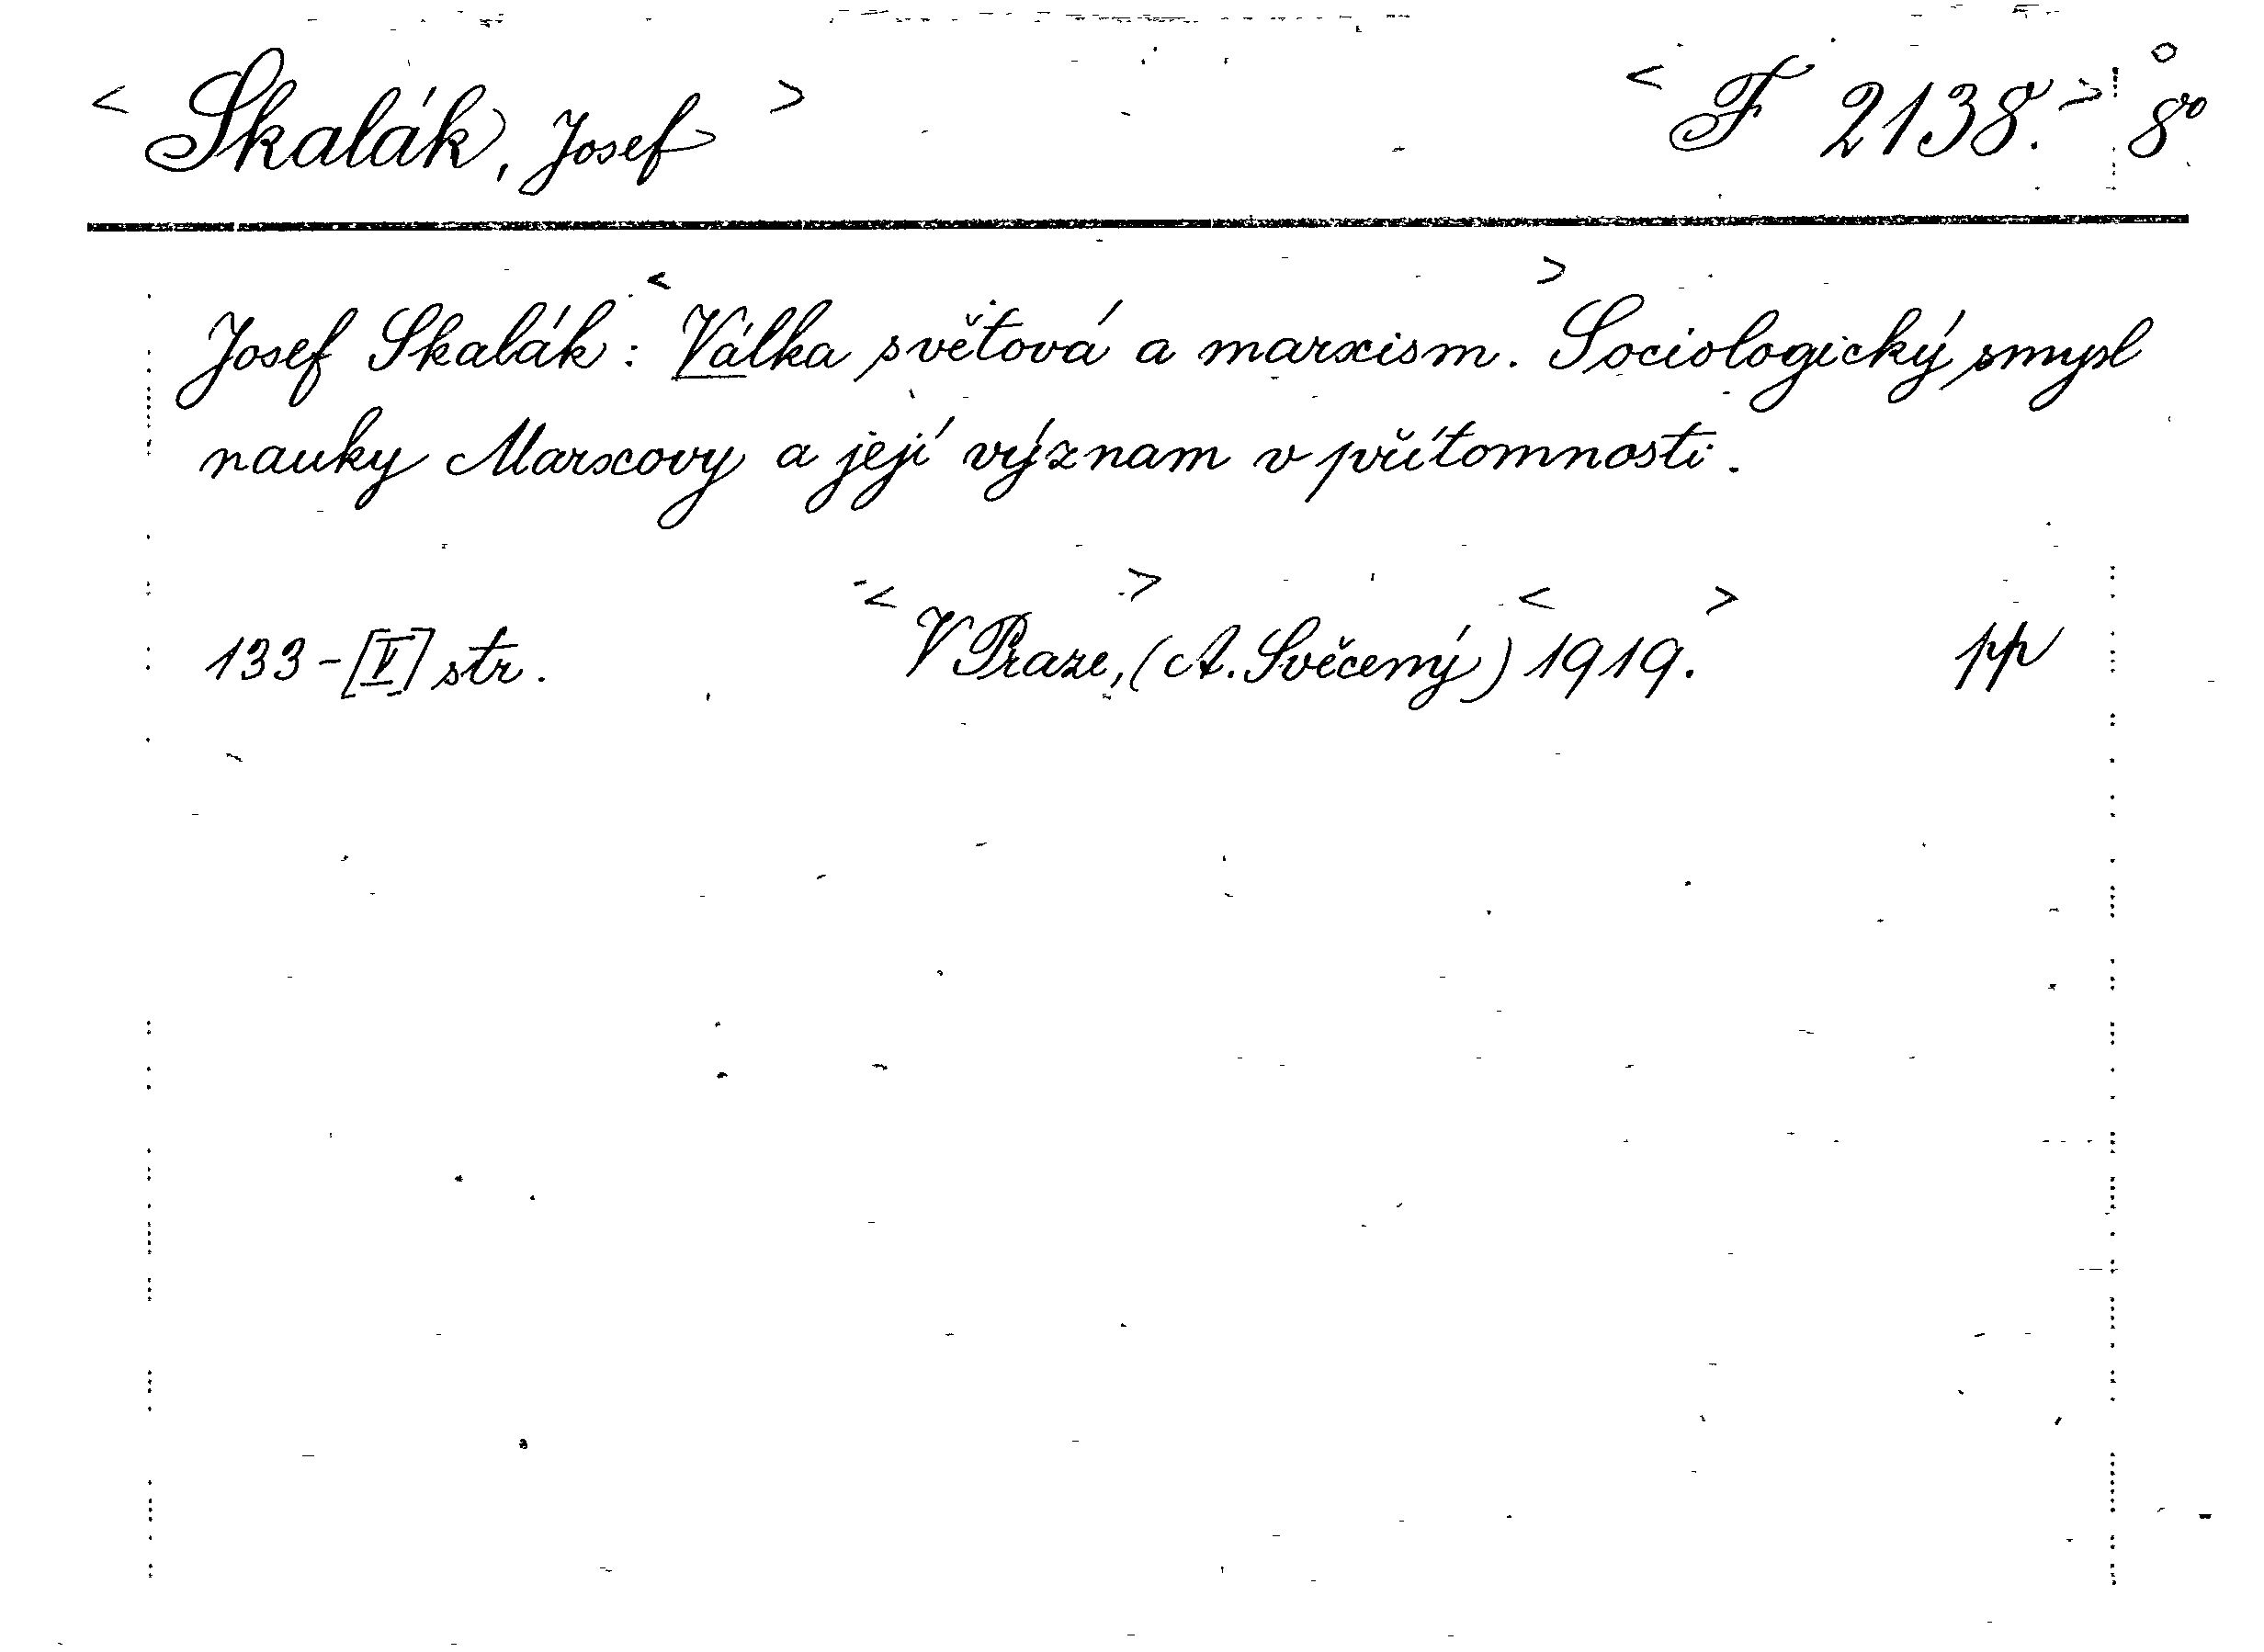 < Skalák, Josef > < F 2138. > 8°
Josef Skalák: < Válka světová a marxism. > Sociologický smysl
nauky Marxovy a její význam v přítomnosti.
133-[V] str. < V Praze, > (A. Svěcený) < 1919. > pp